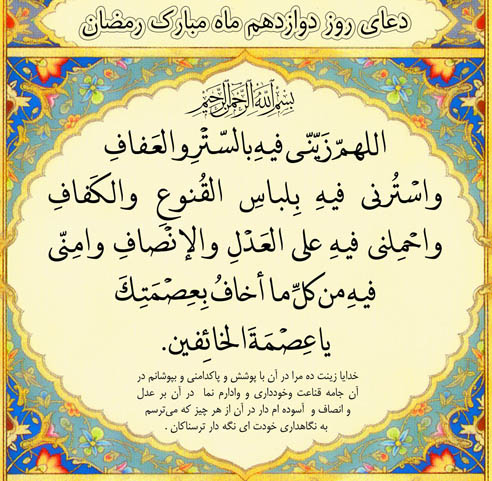 دعای روز دوازدهم ماه مبارک رمضان
بسم الله الرحمن الرحیم
اللهمّ زَیّنّی فیهِ بالسّتْرِ والعَفافِ
واسْتُرنی فیهِ بِلباسِ القُنوعِ والکَفافِ
واحْمِلنی فیهِ علی العَدْلِ والإنْصافِ وامِنّی
فیهِ من کلِّ ما أخافُ بِعِصْمَتِكَ
یا عِصْمَةَ الخائفین.
خدایا زینت ده مرا در آن با پوشش و پاکدامنی و بپوشانم در
آن جامه قناعت وخودداری و وادارم نما در آن بر عدل
و انصاف و آسوده ام دار در آن از هر چیز که می‌ترسم
به نگاهداری خودت ای نگه دار ترسناکان .